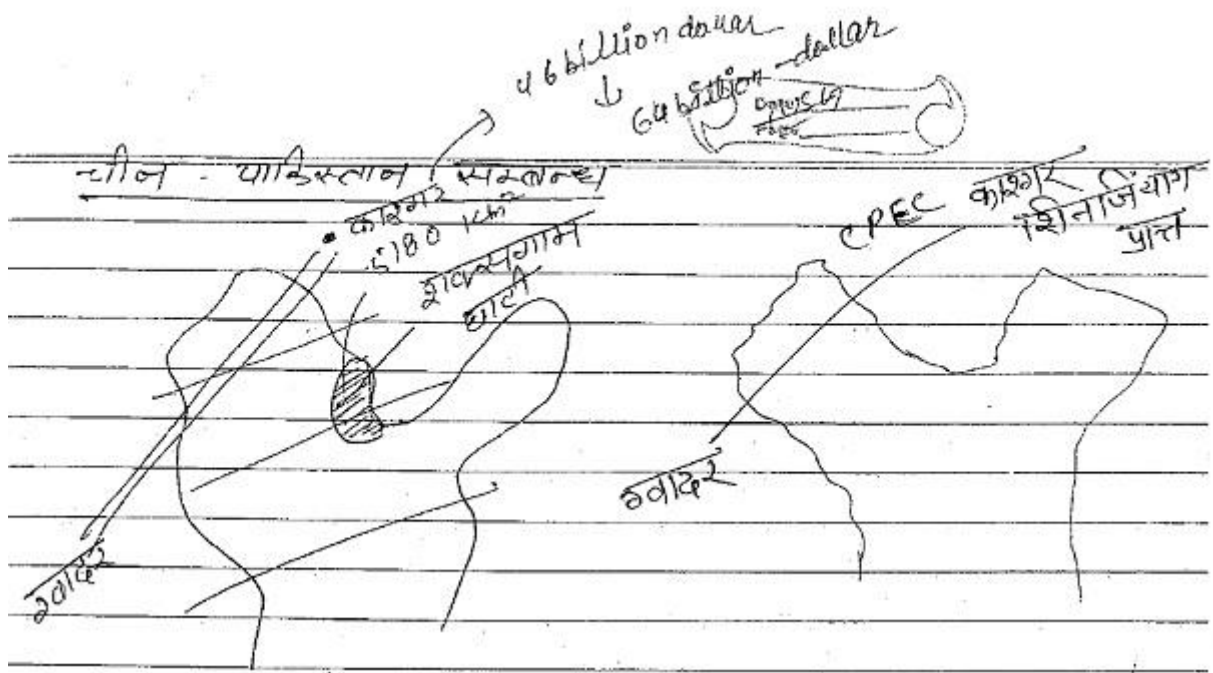 46 billion dollar
↓
64 billion dollar
चीन - पाकिस्तान सम्बन्ध
काशगर
5180 Km²
शक्सगाम
घाटी
ग्वादर
CPEC काशगर
शिनजियांग
प्रान्त
ग्वादर